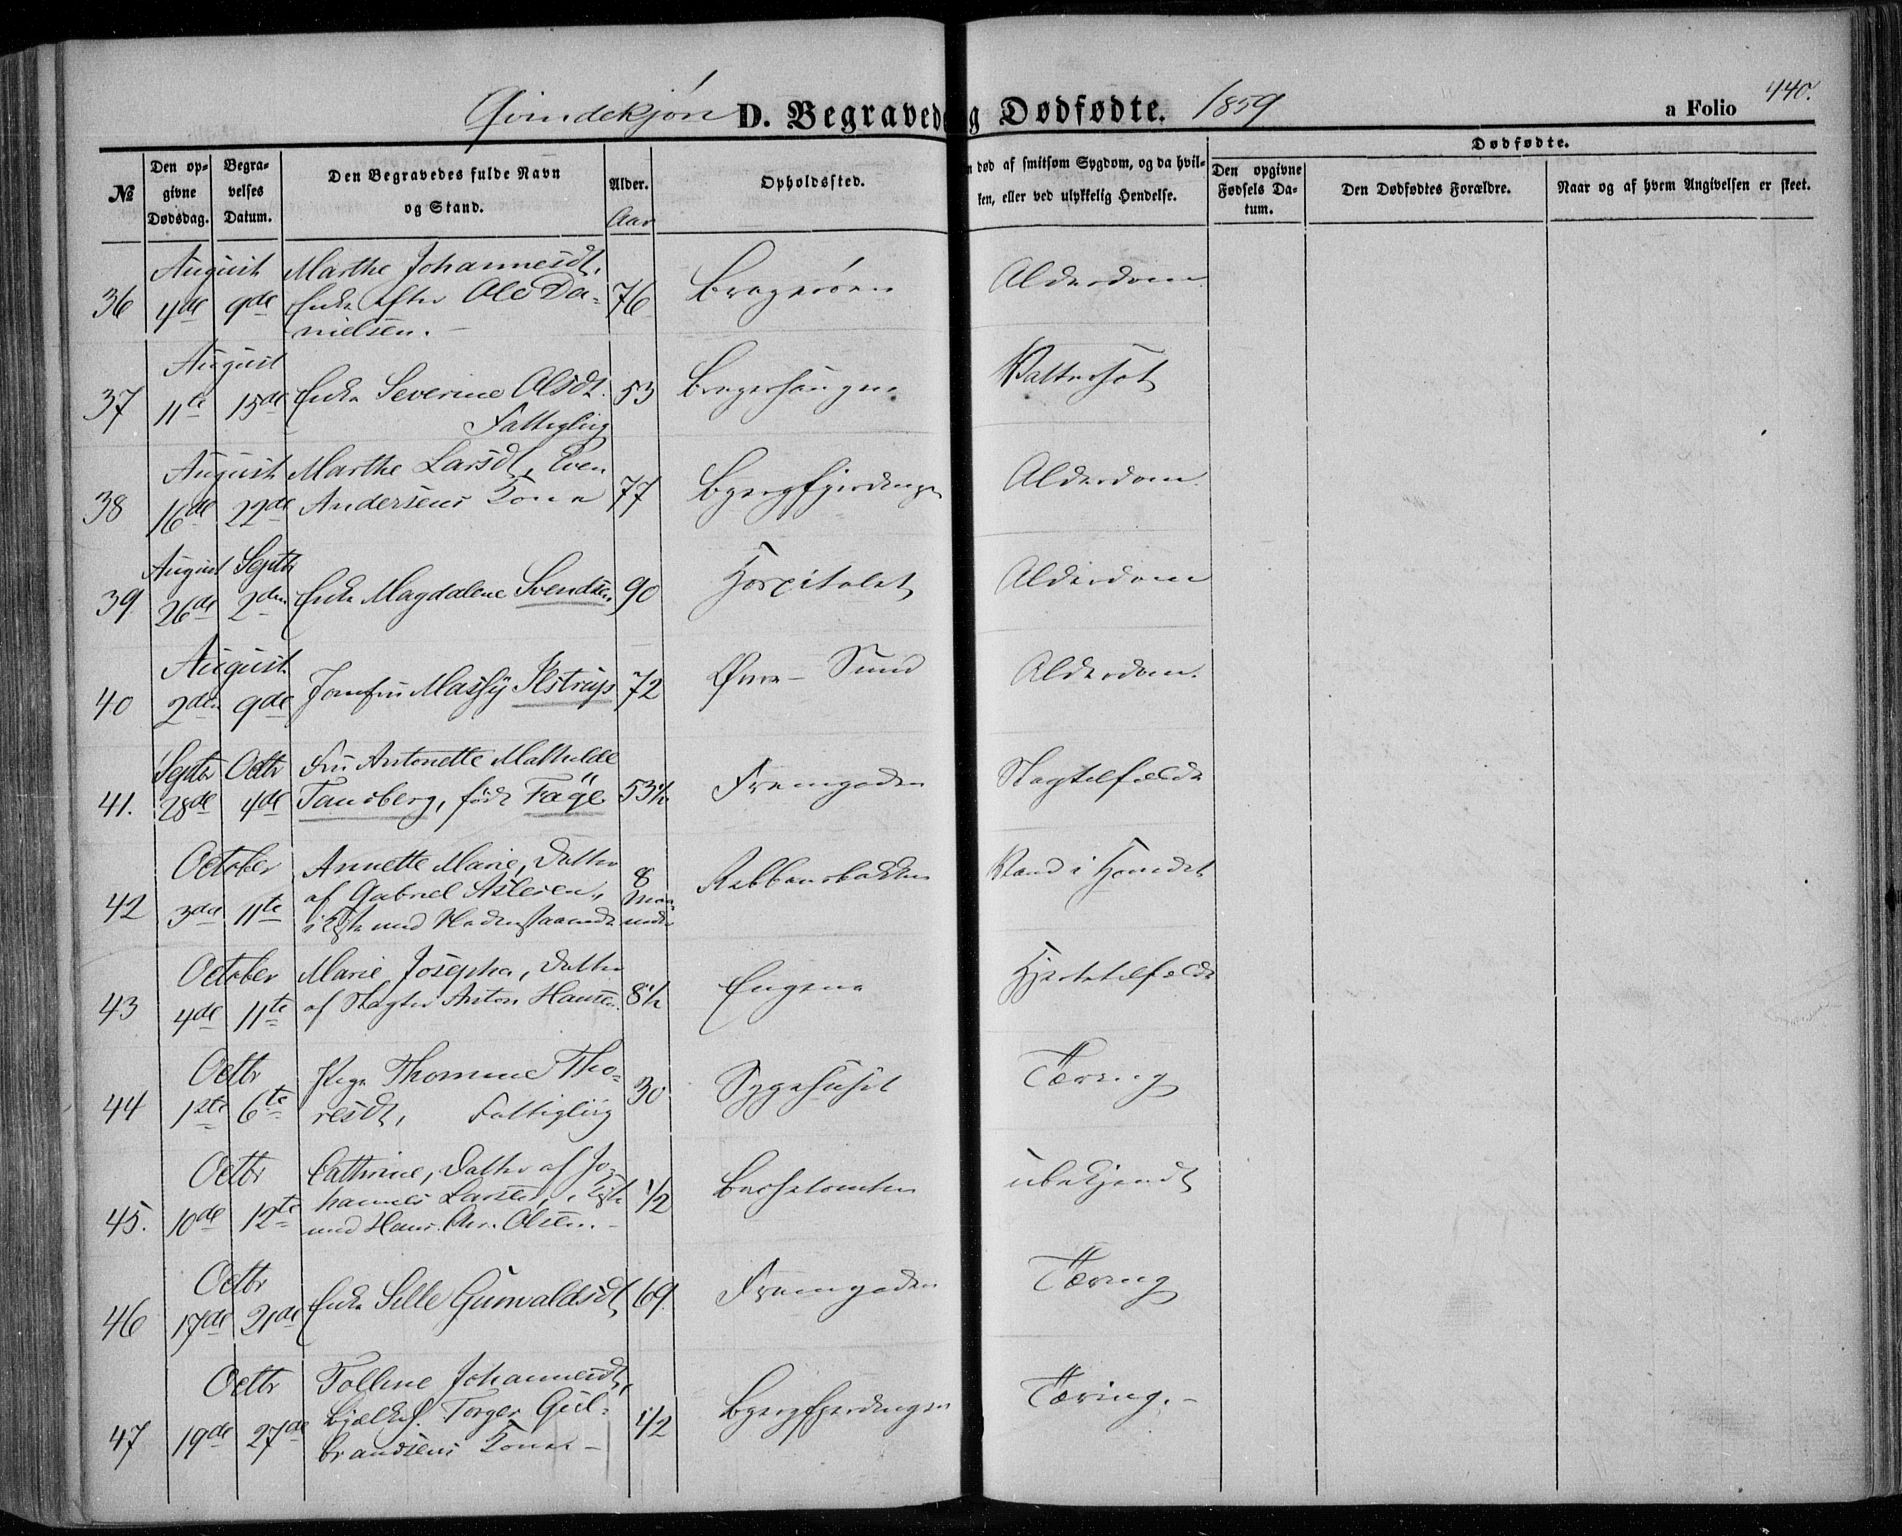 Qvindekjøn D. Begravede og Dødfødte. 1859 a Folio 440.
№ Den opgivne Dødsdag. Begravelses Datum. Den Begravedes fulde Navn og Stand. Alder. Aar Opholdssted. død af smitsom Sygdom, og da hvilken, eller ved ulykkelig Hendelse. Dødfødte.
Den opgivne Fødsels Datum. Den Dødfødtes Forældre. Naar og af hvem Angivelsen er skeet.
August Marthe Johannesdt,
36 4de 9de Enke efter Ole Da= 76 Bragerøen Alderdom.
nielsen. –
August
37 11te 15de Enke Severine Olsdt. 53 Bragerhaugen Vattersot
Fattiglem
August Marthe Larsdt, Even
38 16de 22de Andersens Kone 77 Bjergfjerdingen Alderdom.
August Septbr
39 26de 2den Enke Magdalene Svendsen 90 Hospitalet Alderdom
August
40 2den 9de Jomfru Massy Ilstrup 72 Øvre-Sund Alderdom.
Septbr Octbr Fru Antonette Mathilde
41. 28de 4de Tansberg, født Faÿe 53½ Fremgaden Slagtilfælde
October Annette Marie, Datter
42 3die 11te af Gabriel Aslesen, 8 Maaneder Rabbensbakken Vand i Hovedet
med Nedenstaaende
October Marie Josepha, Datter
43 4de 11te af Slagter Anton Hansen. 8½ Engene Hjertetilfælde
Octbr Pige Thomine Tho=
44 1ste 6te resdt, Fattiglem 30 Sygehuset Tæring
Octbr Cathrine, Datter af Jo=
45. 10de 12te hannes Larsen, ½ ubekjendt
med Hans Chr. Olsen. –
Octbr
46 17de 21de Enke Sille Gunvaldsdt 69. Fremgaden Tæring
Octbr Tolline Johannesdt,
47 19de 27de Torger Gul= ½ Bjergfjerdingen Tæring. –
brandsens Kone –